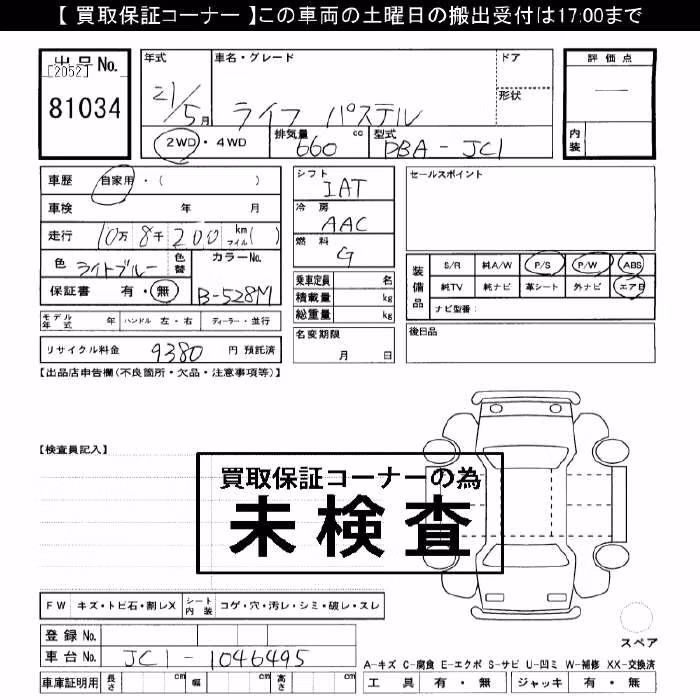 【 買取保証コーナー 】この車両の土曜日の搬出受付は17:00まで
出品 No.
[2052]
81034
年式
21/5月
車名・グレード
ライフ パステル
ドア
形状
評価点
―
内装
2WD・4WD
排気量 660 cc
型式 DBA-JC1
車歴 自家用・( )
車検 年 月
走行 10万 8千 200 km マイル( )
色 ライトブルー
色替
カラーNo.
B-528M
保証書 有・無
モデル年式 年
ハンドル 左・右
ディーラー・並行
リサイクル料金 9380 円 預託済
シフト IAT
冷房 AAC
燃料 G
乗車定員 名
積載量 kg
総重量 kg
名変期限
月 日
セールスポイント
装備品
S/R 純A/W P/S P/W ABS
純TV 純ナビ 革シート 外ナビ エアB
ナビ型番:
後日品
【出品店申告欄(不良箇所・欠品・注意事項等)】
【検査員記入】
買取保証コーナーの為
未検査
FW キズ・トビ石・割レX
シート内装 コゲ・穴・汚レ・シミ・破レ・スレ
登録 No.
車台 No. JC1-1046495
車庫証明用 長さ cm 幅 cm 高さ cm
スペア
A-キズ C-腐食 E-エクボ S-サビ U-凹ミ W-補修 XX-交換済
工具 有・無 ジャッキ 有・無